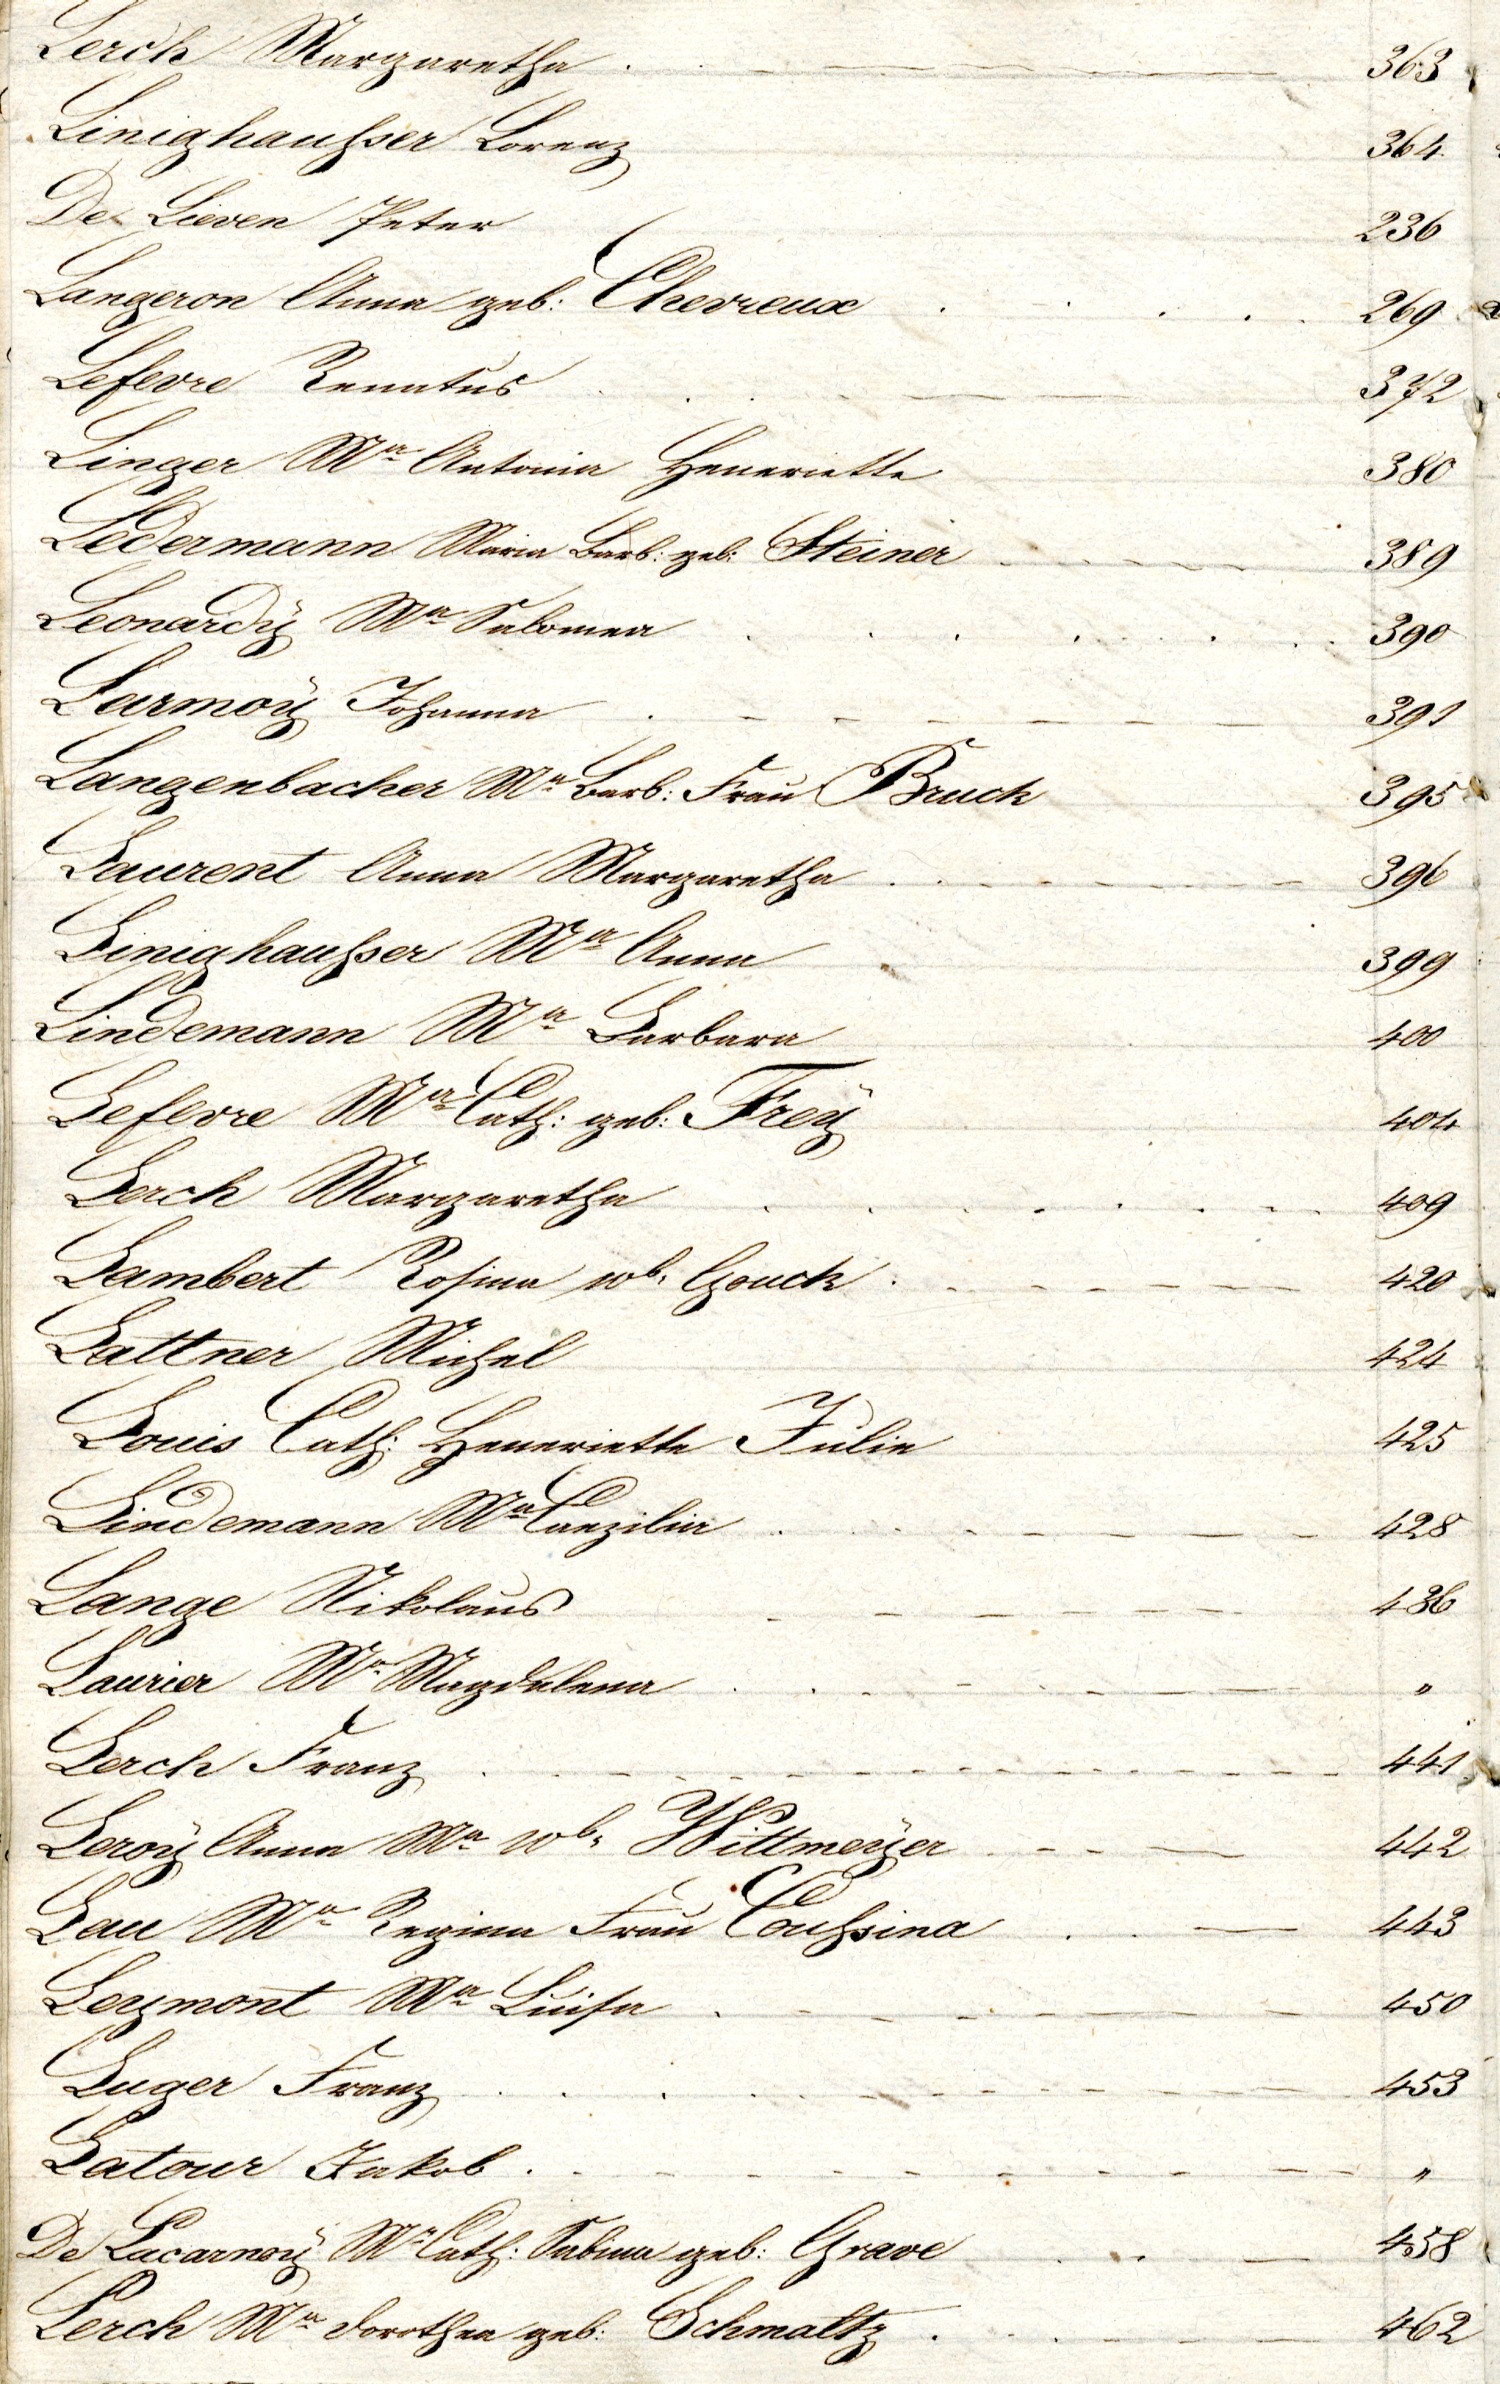 Lerch Margaretha 363
Linighaußer Lorenz 364
De Lieven Peter 236
Langeron Anna geb: Chevreux 269
Lefevre Renatus 372
Linger Ma Antonia Henriette 380
Ledermann Maria Barb: geb: Steiner 389
Leonardÿ Ma Salomea 390
Larmoÿ Johanna 391
Langenbacher Ma Barb: Frau Bruch 395
Laurent Anna Margaretha 396
Linighaußer Ma Anna 399
Lindemann Ma Barbara 400
Lefevre Ma Cath: geb: Freÿ 404
Lerch Margaretha 409
Lambert Rosina wb. Gouck 420
Lattner Michel 424
Louis Cath: Henriette Julie 425
Lindemann Ma Caezilia 428
Lange Nikolaus 436
Laurier Ma Magdalena "
Lerch Franz 441
Leroÿ Anna Ma wb. Wittmeÿer 442
Lau Ma Regina Frau Coußina 443
Leymont Ma Luisa 450
Luger Franz 453
Latour Jakob "
De Lacarnoÿ Ma Cath: Sabina geb: Grave 458
Lerch Ma Dorothea geb: Schmaltz 462